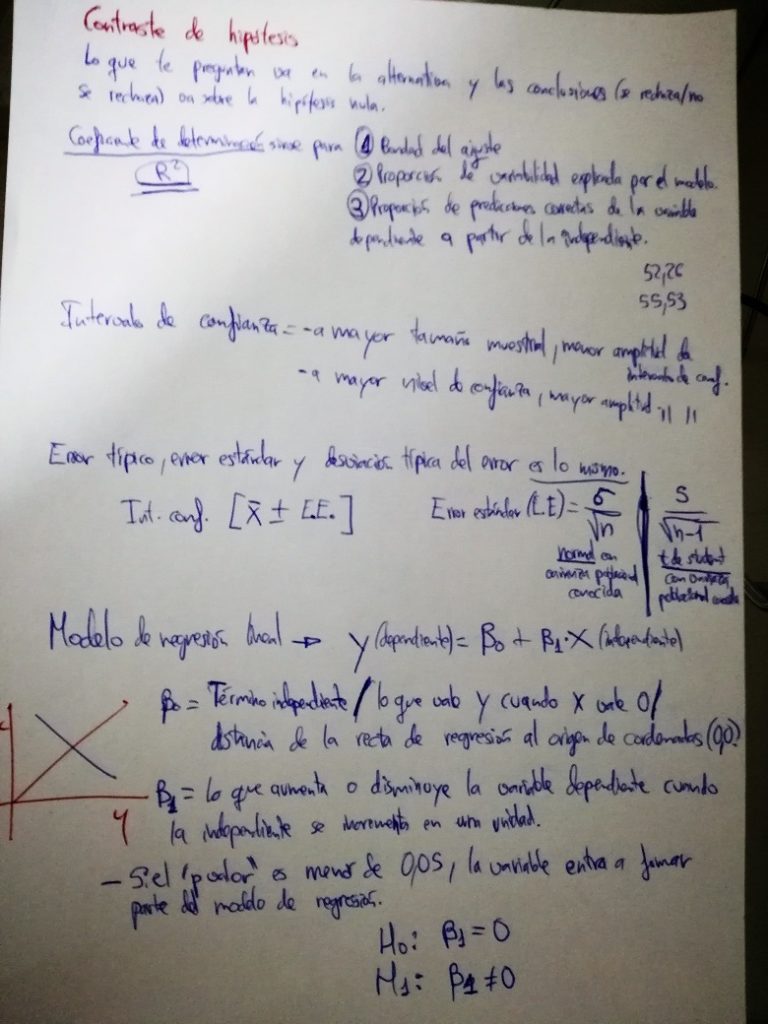 Contraste de hipótesis
Lo que te preguntan va en la alternativa y las conclusiones (se rechaza/no
se rechaza) van sobre la hipótesis nula.
Coeficiente de determinación sirve para ① Bondad del ajuste
R²
② Proporción de variabilidad explicada por el modelo.
③ Proporción de predicciones correctas de la variable
dependiente a partir de la independiente.
52,26
55,53
Intervalo de confianza = - a mayor tamaño muestral, menor amplitud de
intervalo de conf.
- a mayor nivel de confianza, mayor amplitud " "
Error típico, error estándar y desviación típica del error es lo mismo.
Int. conf. [x̄ ± E.E.]
Error estándar (E.E) = σ/√n | S/√n-1
normal con
varianza poblacional
conocida
t de student
con varianza
poblacional
Modelo de regresión lineal → Y (dependiente) = β0 + β1·X (independiente)
β0 = Término independiente / lo que vale y cuando x vale 0/
distancia de la recta de regresión al origen de cordenadas (0,0)
β1 = lo que aumenta o disminuye la variable dependiente cuando
la independiente se incrementa en una unidad.
y
- Si el "pvalor" es menor de 0,05, la variable entra a formar
parte del modelo de regresión.
H0: β1 = 0
H1: β1 ≠ 0